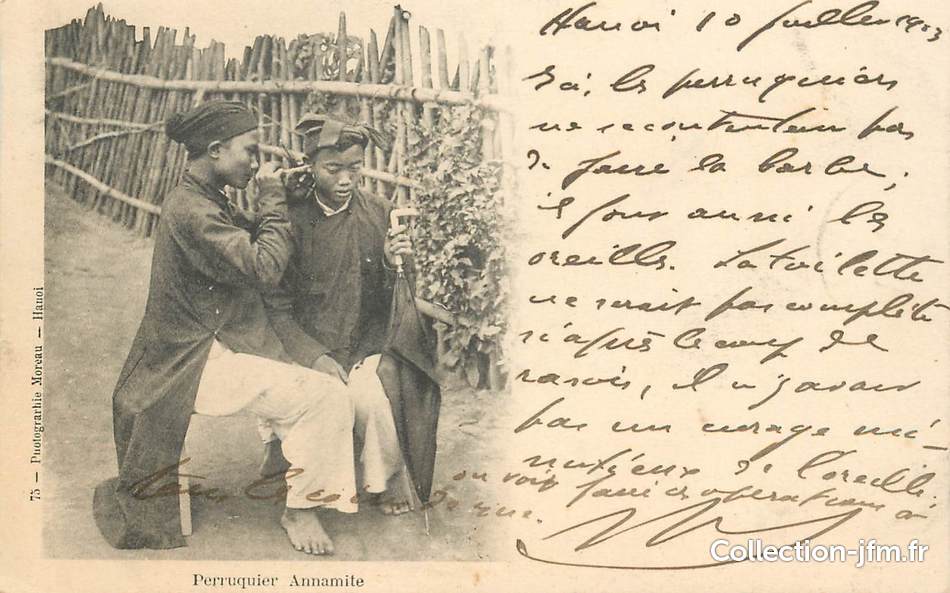 Hanoi 10 juillet 1903
Ici, les perruquiers
ne se contentent pas
de faire la barbe,
ils font aussi les
oreilles. La toilette
ne serait pas complète
si après le coup de
rasoir, il n'y avait
pas un curage mi-
nutieux de l'oreille.
on voit faire ces opérations à
tous les coins de rue.
75 — Photographie Moreau — Hanoi
Perruquier Annamite
Collection-jfm.fr